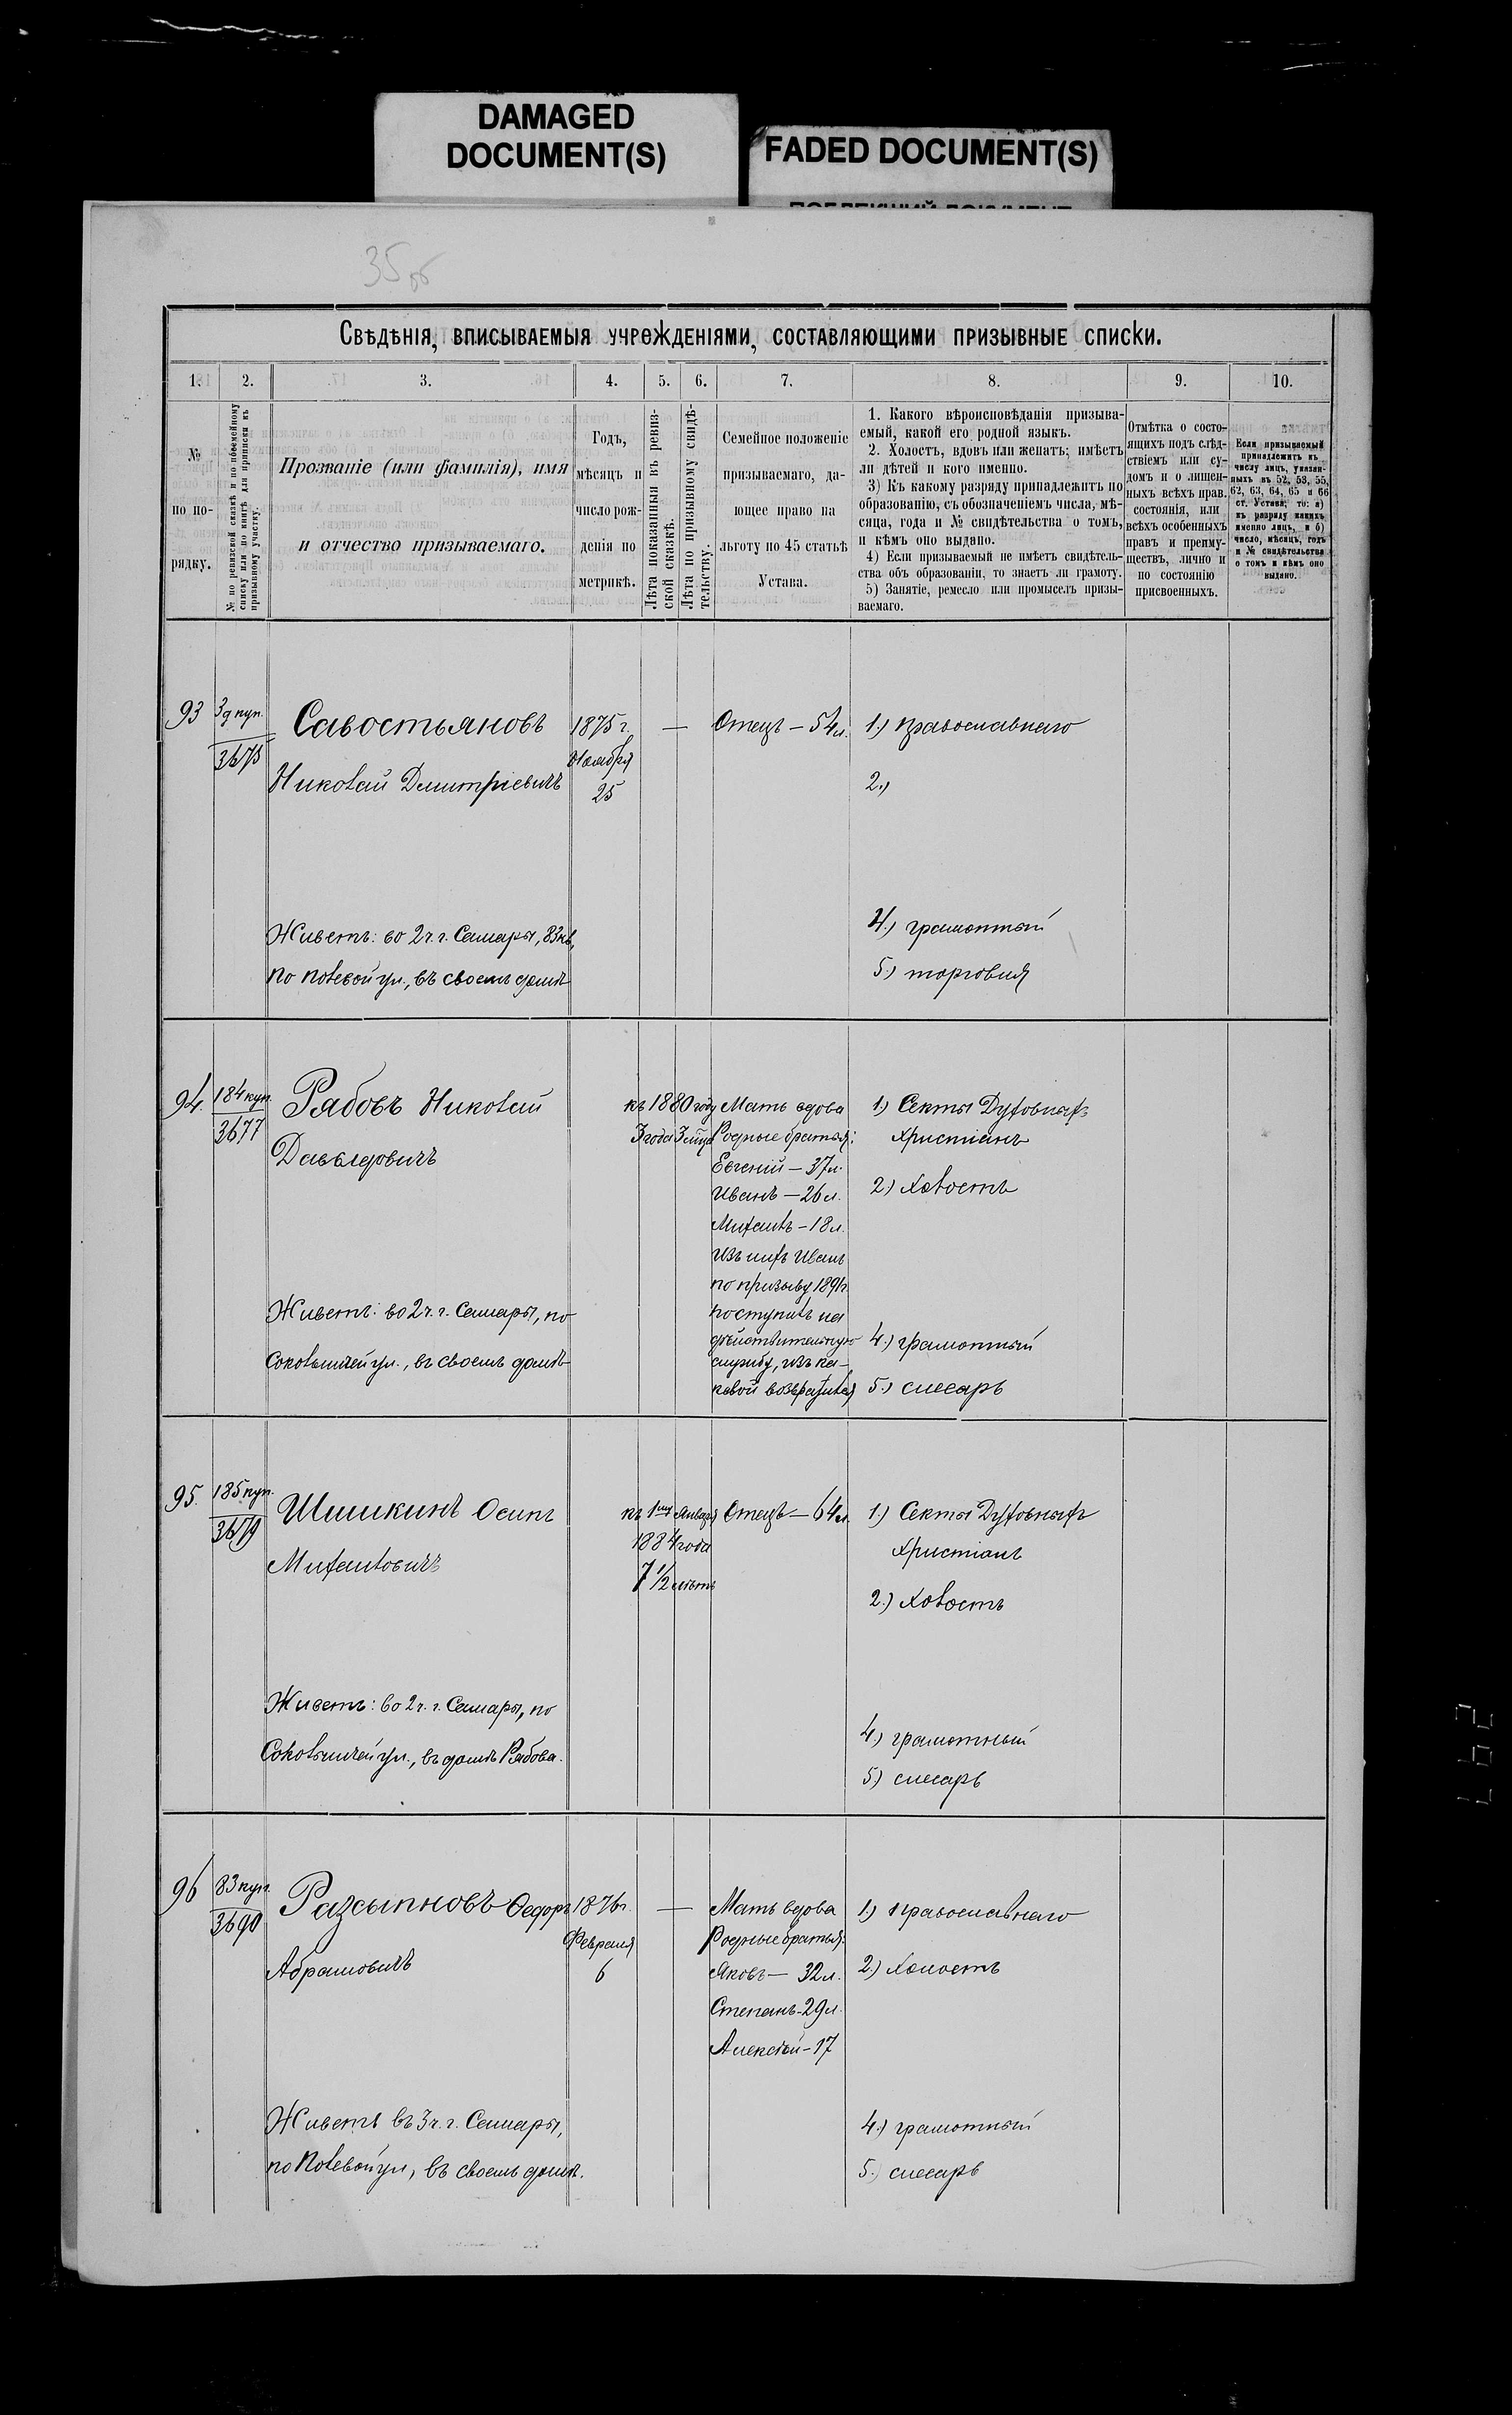 DAMAGED
DOCUMENT(S)
FADED DOCUMENT(S)
35 об
Свѣдѣнія, вписываемыя учрежденіями, составляющими призывные списки.
1. 2. 3. 4. 5. 6. 7. 8. 9. 10.
№
по по-
рядку.
№ по ревизской сказкѣ и по посемейному
списку или по книгѣ для приписки къ
призывному участку.
Прозваніе (или фамилія), имя
и отчество призываемаго.
Годъ,
мѣсяцъ и
число рож-
денія по
метрикѣ.
Лѣта показанныя въ ревиз-
ской сказкѣ.
Лѣта по призывному свидѣ-
тельству.
Семейное положеніе
призываемаго, да-
ющее право на
льготу по 45 статьѣ
Устава.
1. Какого вѣроисповѣданія призыва-
емый, какой его родной языкъ.
2. Холостъ, вдовъ или женатъ; имѣетъ
ли дѣтей и кого именно.
3) Къ какому разряду принадлежитъ по
образованію, съ обозначеніемъ числа, мѣ-
сяца, года и № свидѣтельства о томъ,
и кѣмъ оно выдано.
4) Если призываемый не имѣетъ свидѣтель-
ства объ образованіи, то знаетъ ли грамоту.
5) Занятіе, ремесло или промыселъ призы-
ваемаго.
Отмѣтка о состо-
ящихъ подъ слѣд-
ствіемъ или су-
домъ и о лишен-
ныхъ всѣхъ прав.
состоянія, или
всѣхъ особенныхъ
правъ и преиму-
ществъ, лично и
по состоянію
присвоенныхъ.
Если призываемый
принадлежитъ къ
числу лицъ, указан-
ныхъ въ 52, 53, 55,
62, 63, 64, 65 и 66
ст. Устава, то: а)
къ разряду какихъ
именно лицъ, и б)
число, мѣсяцъ, годъ
и № свидѣтельства
о томъ и кѣмъ оно
выдано.
93
куп.
3675
Савостьяновъ
Николай Дмитріевичъ
1875 г.
Ноября
25
—
Отецъ — 54 л.
1.) православнаго
2.)
4.) грамотный
5.) торговля
Живетъ: во 2 ч. г. Самары, 83 кв,
по Полевой ул., въ своемъ домѣ
94.
184 куп.
3677
Рябовъ Николай
Давыдовичъ
къ 1880 году
3 года 3 мѣца
Мать вдова
Родные братья:
Евгеній — 37 л.
Иванъ — 26 л.
Михаилъ — 18 л.
Изъ нихъ Иванъ
по призыву 189 г.
поступилъ на
дѣйствительную
службу, изъ ка-
ковой возвратился
1) Секты Духовныхъ
христіанъ
2.) холостъ
4.) грамотный
5.) слесарь
Живетъ: во 2 ч. г. Самары, по
Сокольничей ул., въ своемъ домѣ
95.
185 куп.
3679
Шишкинъ Осипъ
Михайловичъ
къ 1му Января
1884 года
7 1/2 лѣтъ
Отецъ — 64 л.
1.) Секты Духовныхъ
христіанъ
2.) холостъ
4.) грамотный
5.) слесарь
Живетъ: во 2 ч. г. Самары, по
Сокольничей ул., въ домѣ Рябова.
96
83 куп.
3690
Разсыпновъ Ѳедоръ
Абрамовичъ
1876 г.
Февраля
6
—
Мать вдова
Родные братья:
Яковъ — 32 л.
Степанъ - 29 л.
Алексѣй - 17
1.) православнаго
2.) холостъ
4.) грамотный
5.) слесарь
Живетъ въ 3 ч. г. Самары,
по Полевой ул., въ своемъ домѣ.